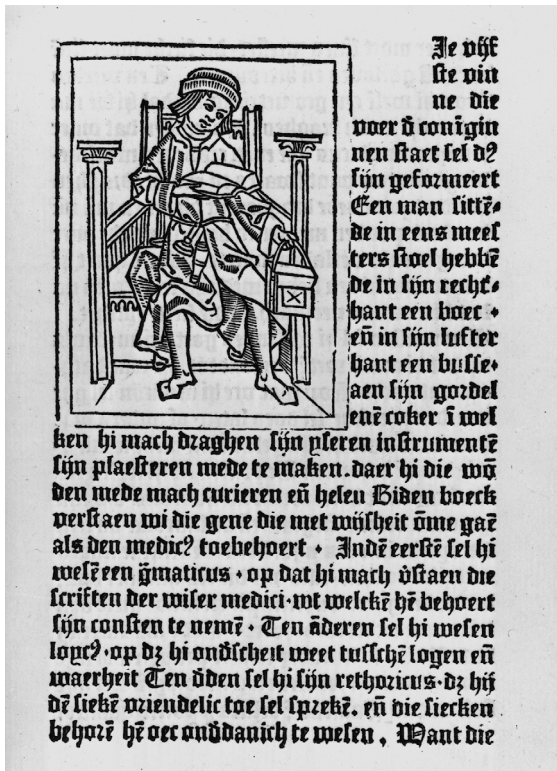 Je vijf
ste vin
ne die
voer đ coni̅gin
nen staet sel dꝰ
sijn geformeert
Een man sitte̅⸗
de in eens mees
ters stoel hebbe̅
de in sijn recht⸗
hant een boec ⸗
en̅ in sijn lufter
hant een busse⸗
aen sijn gordel
ene̅ coker i̅ wel
ken hi mach draghen sijn yseren instrumente̅
sijn plaesteren mede te maken. daer hi die wo̅
den mede mach curieren en̅ helen Biden boeck
verstaen wi die gene die met wijsheit o̅me gae̅
als den medicꝰ toebehoert · Inde̅ eerste̅ sel hi
wese̅ een g̅maticus · op dat hi mach v̅staen die
scriften der wiser medici · wt welcke̅ he̅ behoert
sijn consten te neme̅ · Ten a̅deren sel hi wesen
loycꝰ · op dꝫ hi ond̅scheit weet tussche̅ logen en̅
waerheit Ten d̅den sel hi sijn rethoricus · dꝫ hij
de̅ sieke̅ vriendelic toe sel spreke̅. en̅ die siecken
behore̅ he̅ oec ond̅danich te wesen. Want die